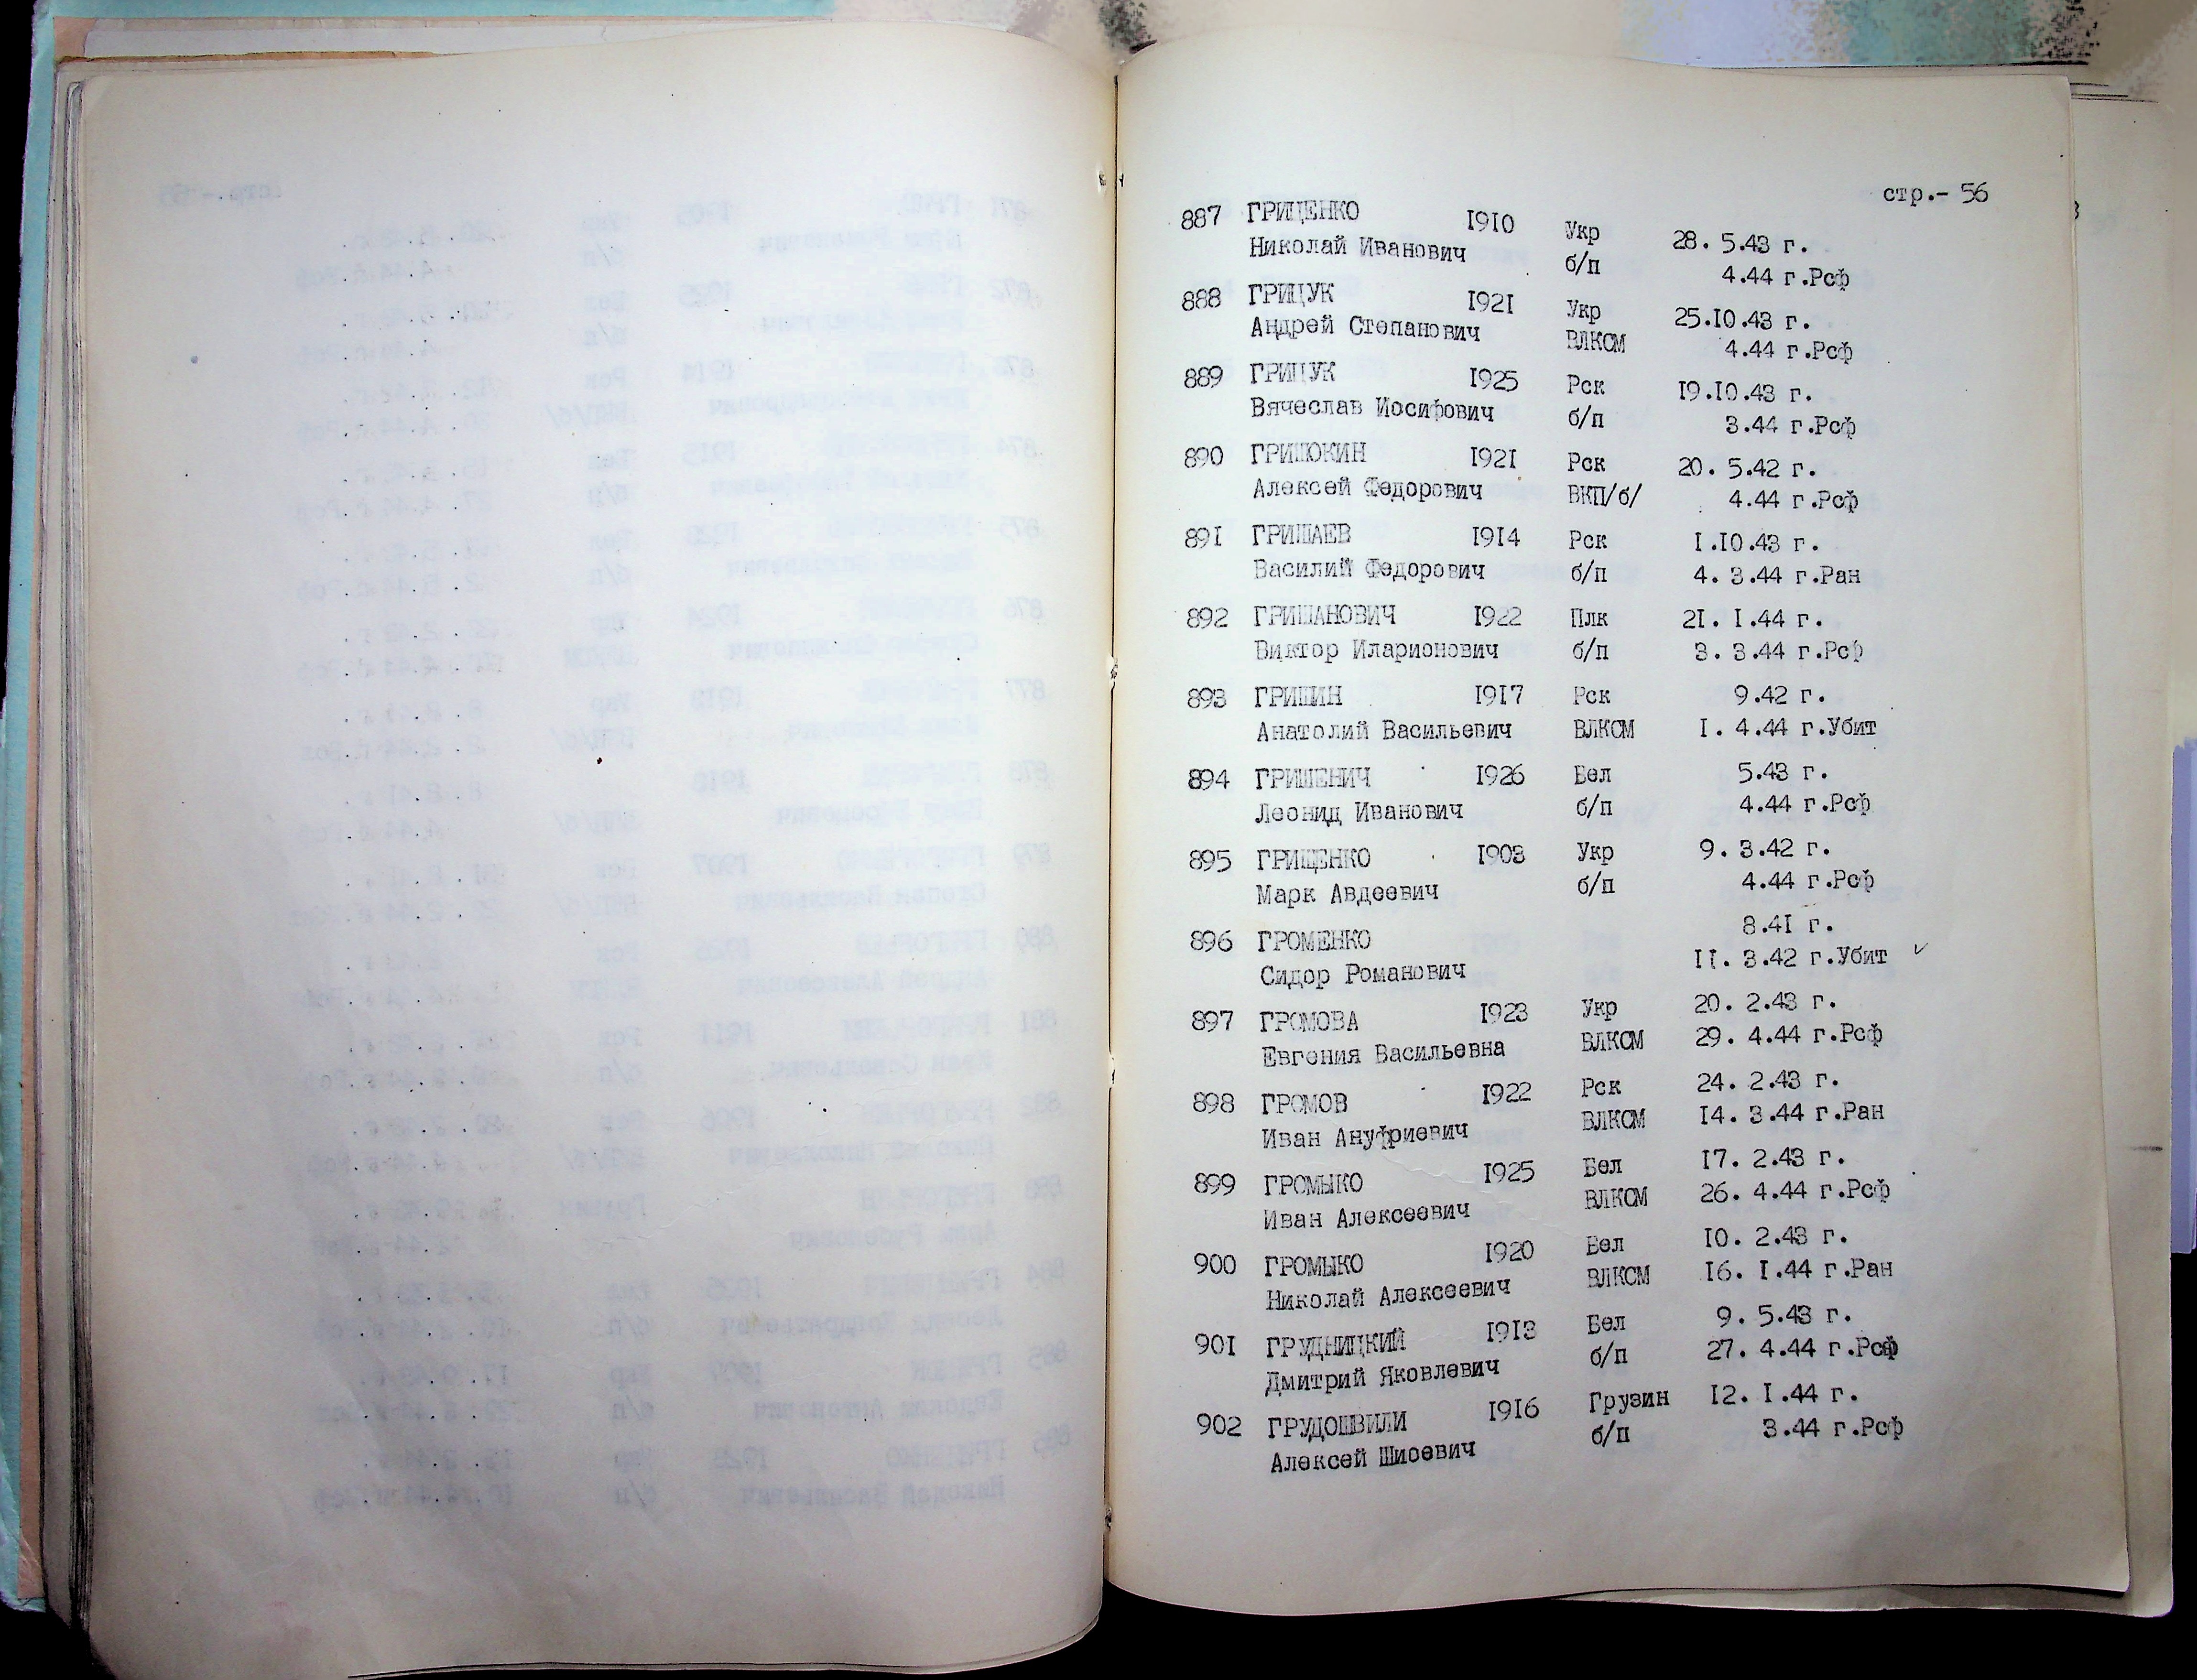 стр.- 56
887 ГРИЦЕНКО 1910 Укр 28. 5.43 г.
Николай Иванович б/п 4.44 г.Рсф
888 ГРИЦУК 1921 Укр 25.10.43 г.
Андрей Степанович ВЛКСМ 4.44 г.Рсф
889 ГРИЦУК 1925 Рск 19.10.43 г.
Вячеслав Иосифович б/п 3.44 г.Рсф
890 ГРИШОКИН 1921 Рск 20. 5.42 г.
Алексей Федорович ВКП/б/ 4.44 г.Рсф
891 ГРИШАЕВ 1914 Рск 1.10.43 г.
Василий Федорович б/п 4. 3.44 г.Ран
892 ГРИШАНОВИЧ 1922 Плк 21. 1.44 г.
Виктор Иларионович б/п 3. 3.44 г.Рсф
893 ГРИШИН 1917 Рск 9.42 г.
Анатолий Васильевич ВЛКСМ 1. 4.44 г.Убит
894 ГРИШЕНИЧ 1926 Бел 5.43 г.
Леонид Иванович б/п 4.44 г.Рсф
895 ГРИЩЕНКО 1903 Укр 9. 3.42 г.
Марк Авдеевич б/п 4.44 г.Рсф
896 ГРОМЕНКО 8.41 г.
Сидор Романович 11. 3.42 г.Убит ✓
897 ГРОМОВА 1923 Укр 20. 2.43 г.
Евгения Васильевна ВЛКСМ 29. 4.44 г.Рсф
898 ГРОМОВ 1922 Рск 24. 2.43 г.
Иван Ануфриевич ВЛКСМ 14. 3.44 г.Ран
899 ГРОМЫКО 1925 Бел 17. 2.43 г.
Иван Алексеевич ВЛКСМ 26. 4.44 г.Рсф
900 ГРОМЫКО 1920 Бел 10. 2.43 г.
Николай Алексеевич ВЛКСМ 16. 1.44 г.Ран
901 ГРУДНИЦКИЙ 1913 Бел 9. 5.43 г.
Дмитрий Яковлевич б/п 27. 4.44 г.Рсф
902 ГРУДОШВИЛИ 1916 Грузин 12. 1.44 г.
Алексей Шиоевич б/п 3.44 г.Рсф